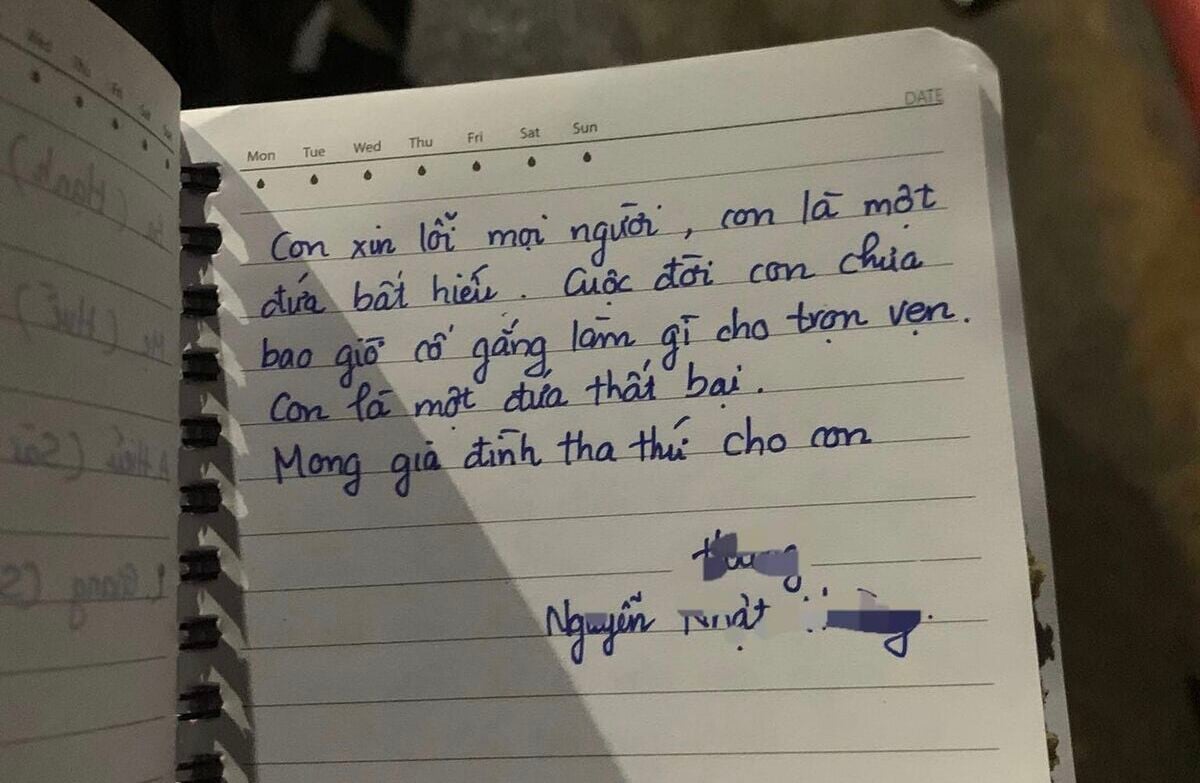 Mon Tue Wed Thu Fri Sat Sun DATE
Con xin lỗi mọi người, con là một
đứa bất hiếu. Cuộc đời con chưa
bao giờ cố gắng làm gì cho trọn vẹn.
Con là một đứa thất bại.
Mong gia đình tha thứ cho con
Nguyễn